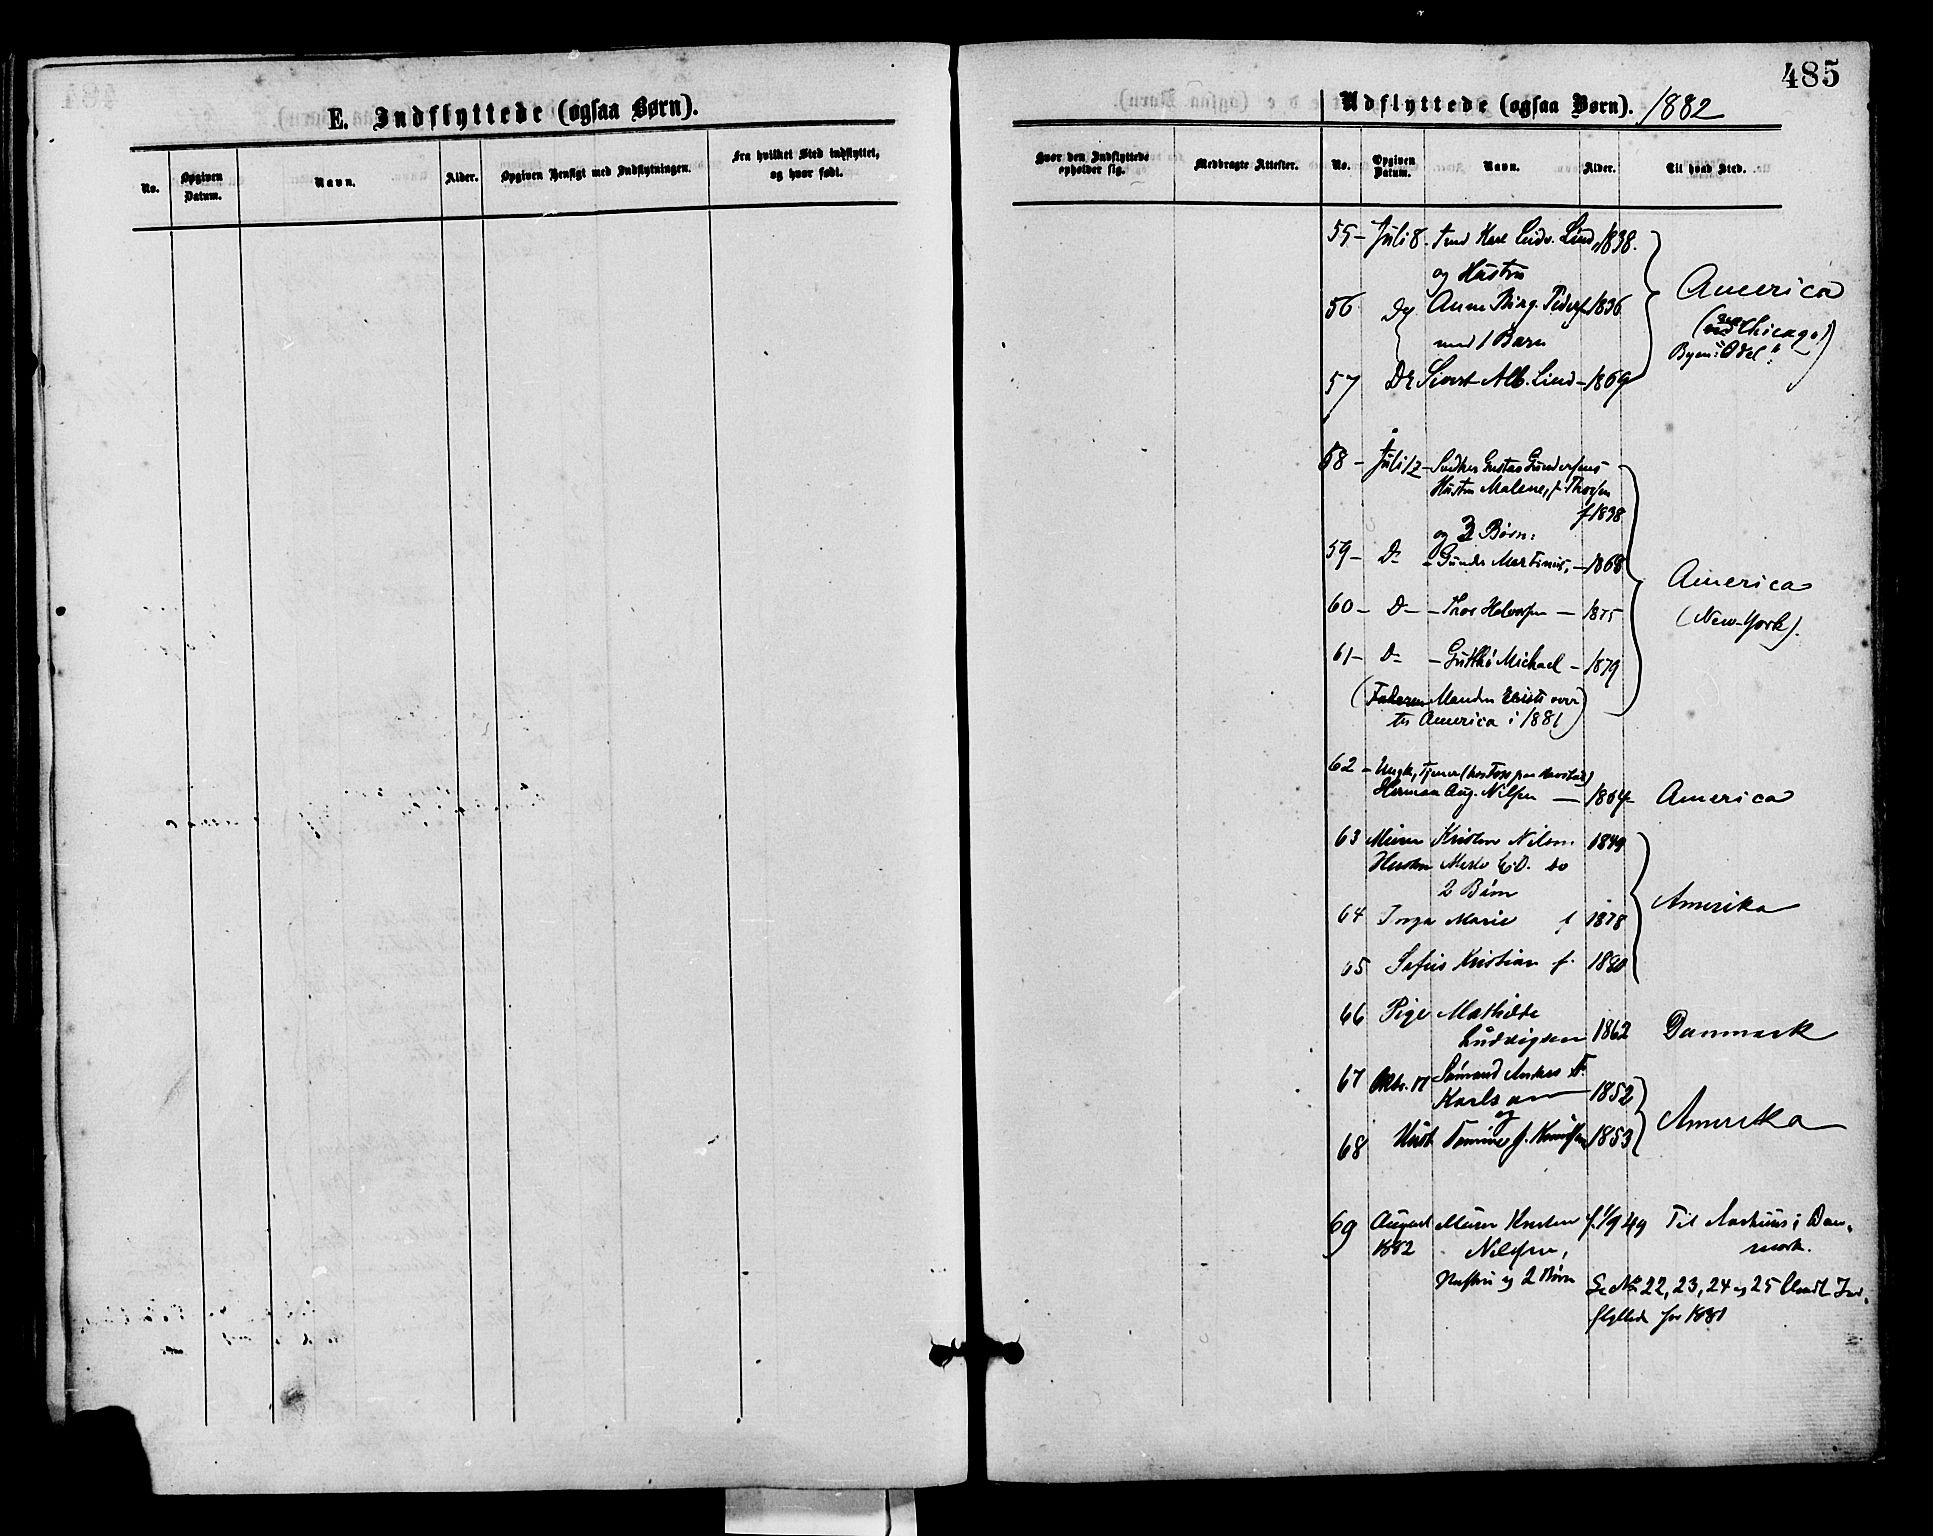 485
E. Indflyttede (ogsaa Børn).
No.
Opgiven Datum.
Navn.
Alder.
Opgiven Hensigt med Indflytningen.
Fra hvilket Sted indflyttet, og hvor født.
Hvor den Indflyttede opholder sig.
Medbragte Attester.
Udflyttede (ogsaa Børn). 1882
No.
Opgiven Datum.
Navn.
Alder.
Til hvad Sted.
55 - Juli 8. Karl Ludv. Lind, 1838.
og Hustru
56 Do Anne Birg. Peders 1836
med 1 Barn
57 Do Sivert Alb. Lind - 1869
America
(Chicago)
Byen: "Odel"
58 - Juli 12 - Gustav Gundersens
Hustru Malene, f. Thorsen
f 1838
og 3 Børn:
59 - D - Gunder Martinius, - 1868
60 - D - Thor Halvorsen - 1875
61 - D - Michael - 1879
America
(New-York).
(Faderen Manden reiste over
til America i 1881)
62 - Ungk, Tjener
Herman Aug. Nilsen - 1864 - America
63 Murer Kristen Nilsen 1849
Hustru
2 Børn
64 Inga Marie f 1878
65 Sofus Kristian f. 1880
Amerika
66 Pige Mathilde
Ludvigsen 1862 Danmark
67 Oktbr. 17 Sömand
Karlsen 1852
og
68 Hust f. Knudsen 1853
Amerika
69 August Murer Kristen f. 1/9 49 Til Aarhuus i Dan-
1882 Nilsen, mark.
Hustru og 2 Børn
Se No 22, 23, 24 og 25 blandt Ind-
flyttede for 1881